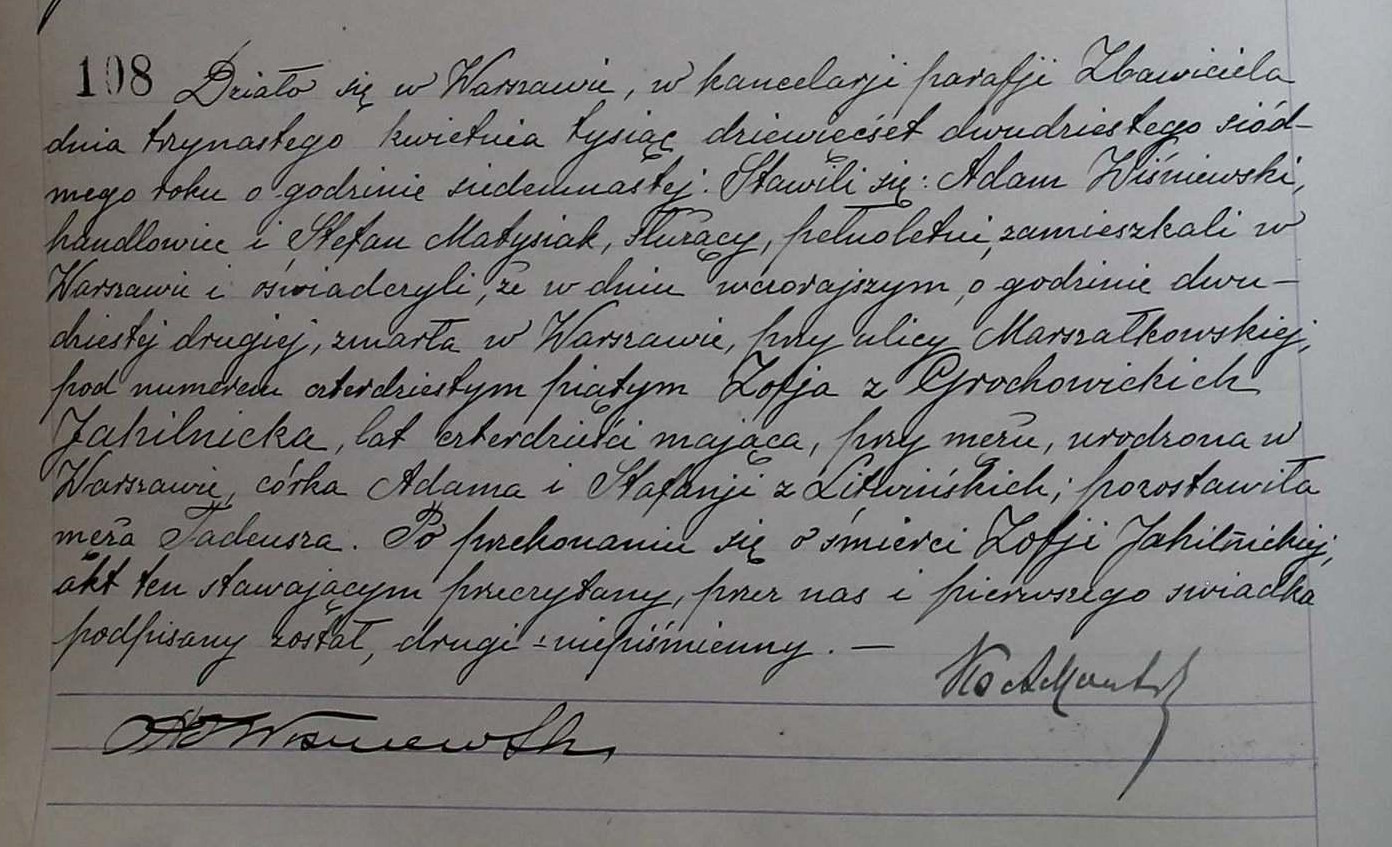 108 Działo się w Warszawie, w kancelarji parafji Zbawiciela
dnia trzynastego kwietnia tysiąc dziewięćset dwudziestego siód-
mego roku o godzinie siedemnastej. Stawili się: Adam Wiśniewski,
handlowiec i Stefan Matysiak, służący, pełnoletni, zamieszkali w
Warszawie i oświadczyli, że w dniu wczorajszym, o godzinie dwu-
dziestej drugiej, zmarła w Warszawie, przy ulicy Marszałkowskiej,
pod numerem czterdziestym piątym Zofja z Grochowickich
Jahilnicka, lat czterdzieści mająca, przy mężu, urodzona w
Warszawie, córka Adama i Stafanji z Litwińskich; pozostawiła
męża Tadeusza. Po przekonaniu się o śmierci Zofji Jahilnickiej,
akt ten stawającym przeczytany, przez nas i pierwszego świadka
podpisany został, drugi - niepiśmienny. —
Wiśniewski